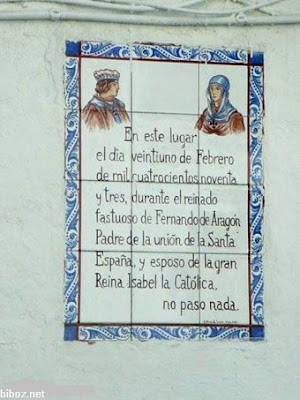 En este lugar
el día veintiuno de Febrero
de mil cuatrocientos noventa
y tres, durante el reinado
fastuoso de Fernando de Aragón
Padre de la unión de la Santa
España, y esposo de la gran
Reina Isabel la Católica,
no paso nada.
biboz.net